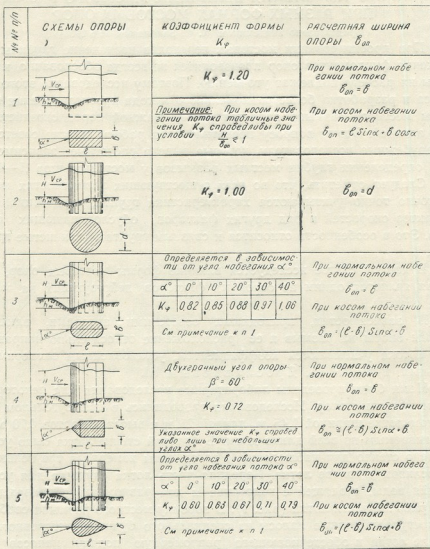 №№ п/п
СХЕМЫ ОПОРЫ
КОЭФФИЦИЕНТ ФОРМЫ
Kφ
РАСЧЕТНАЯ ШИРИНА
ОПОРЫ воп
1
H
Vср
α°
в
ℓ
Kφ = 1.20
Примечание: При косом набе-
гании потока табличные зна-
чения Kφ справедливы при
условии H/воп ≤ 1
При нормальном набе
гании потока
воп = в
При косом набегании
потока
воп = ℓ Sinα + в cosα
2
H
Vср
d
Kφ = 1,00
воп = d
3
H
Vср
α°
в
ℓ
Определяется в зависимос-
ти от угла набегания α°
α° 0° 10° 20° 30° 40°
Kφ 0,82 0,85 0,88 0,97 1,06
См примечание к п 1
При нормальном набе
гании потока
воп = в
При косом набегании
потока
воп = (ℓ-в) Sinα + в
4
H
Vср
α°
в
ℓ
Двухгранный угол опоры
β = 60°
Kφ = 0.72
Указанное значение Kφ справед
ливо лишь при небольших
углах α°
При нормальном набе-
гании потока
воп = в
При косом набегании
потока
воп = (ℓ-в) Sinα + в
5
H
Vср
α°
в
ℓ
Определяется в зависимости
от угла набегания потока α°
α° 0° 10° 20° 30° 40°
Kφ 0.60 0.63 0.67 0,71 0,79
См примечание к п 1
При нормальном набега
нии потока
воп = в
При косом набегании
потока
воп = (ℓ-в) Sinα + в